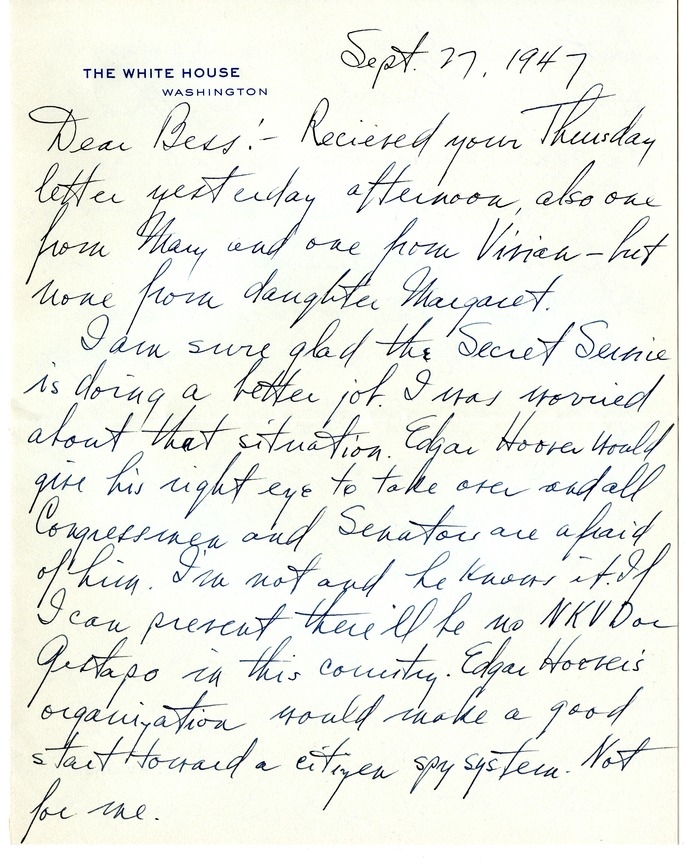 Sept. 27, 1947
THE WHITE HOUSE
WASHINGTON
Dear Bess:- Recieved your Thursday
letter yesterday afternoon, also one
from Mary and one from Vivian - but
none from daughter Margaret.
I am sure glad the Secret Service
is doing a better job. I was worried
about that situation. Edgar Hoover would
give his right eye to take over and all
Congressmen and Senators are afraid
of him. I'm not and he knows it. If
I can prevent there'll be no NKVD or
Gestapo in this country. Edgar Hoover's
organization would make a good
start toward a citizen spy system. Not
for me.